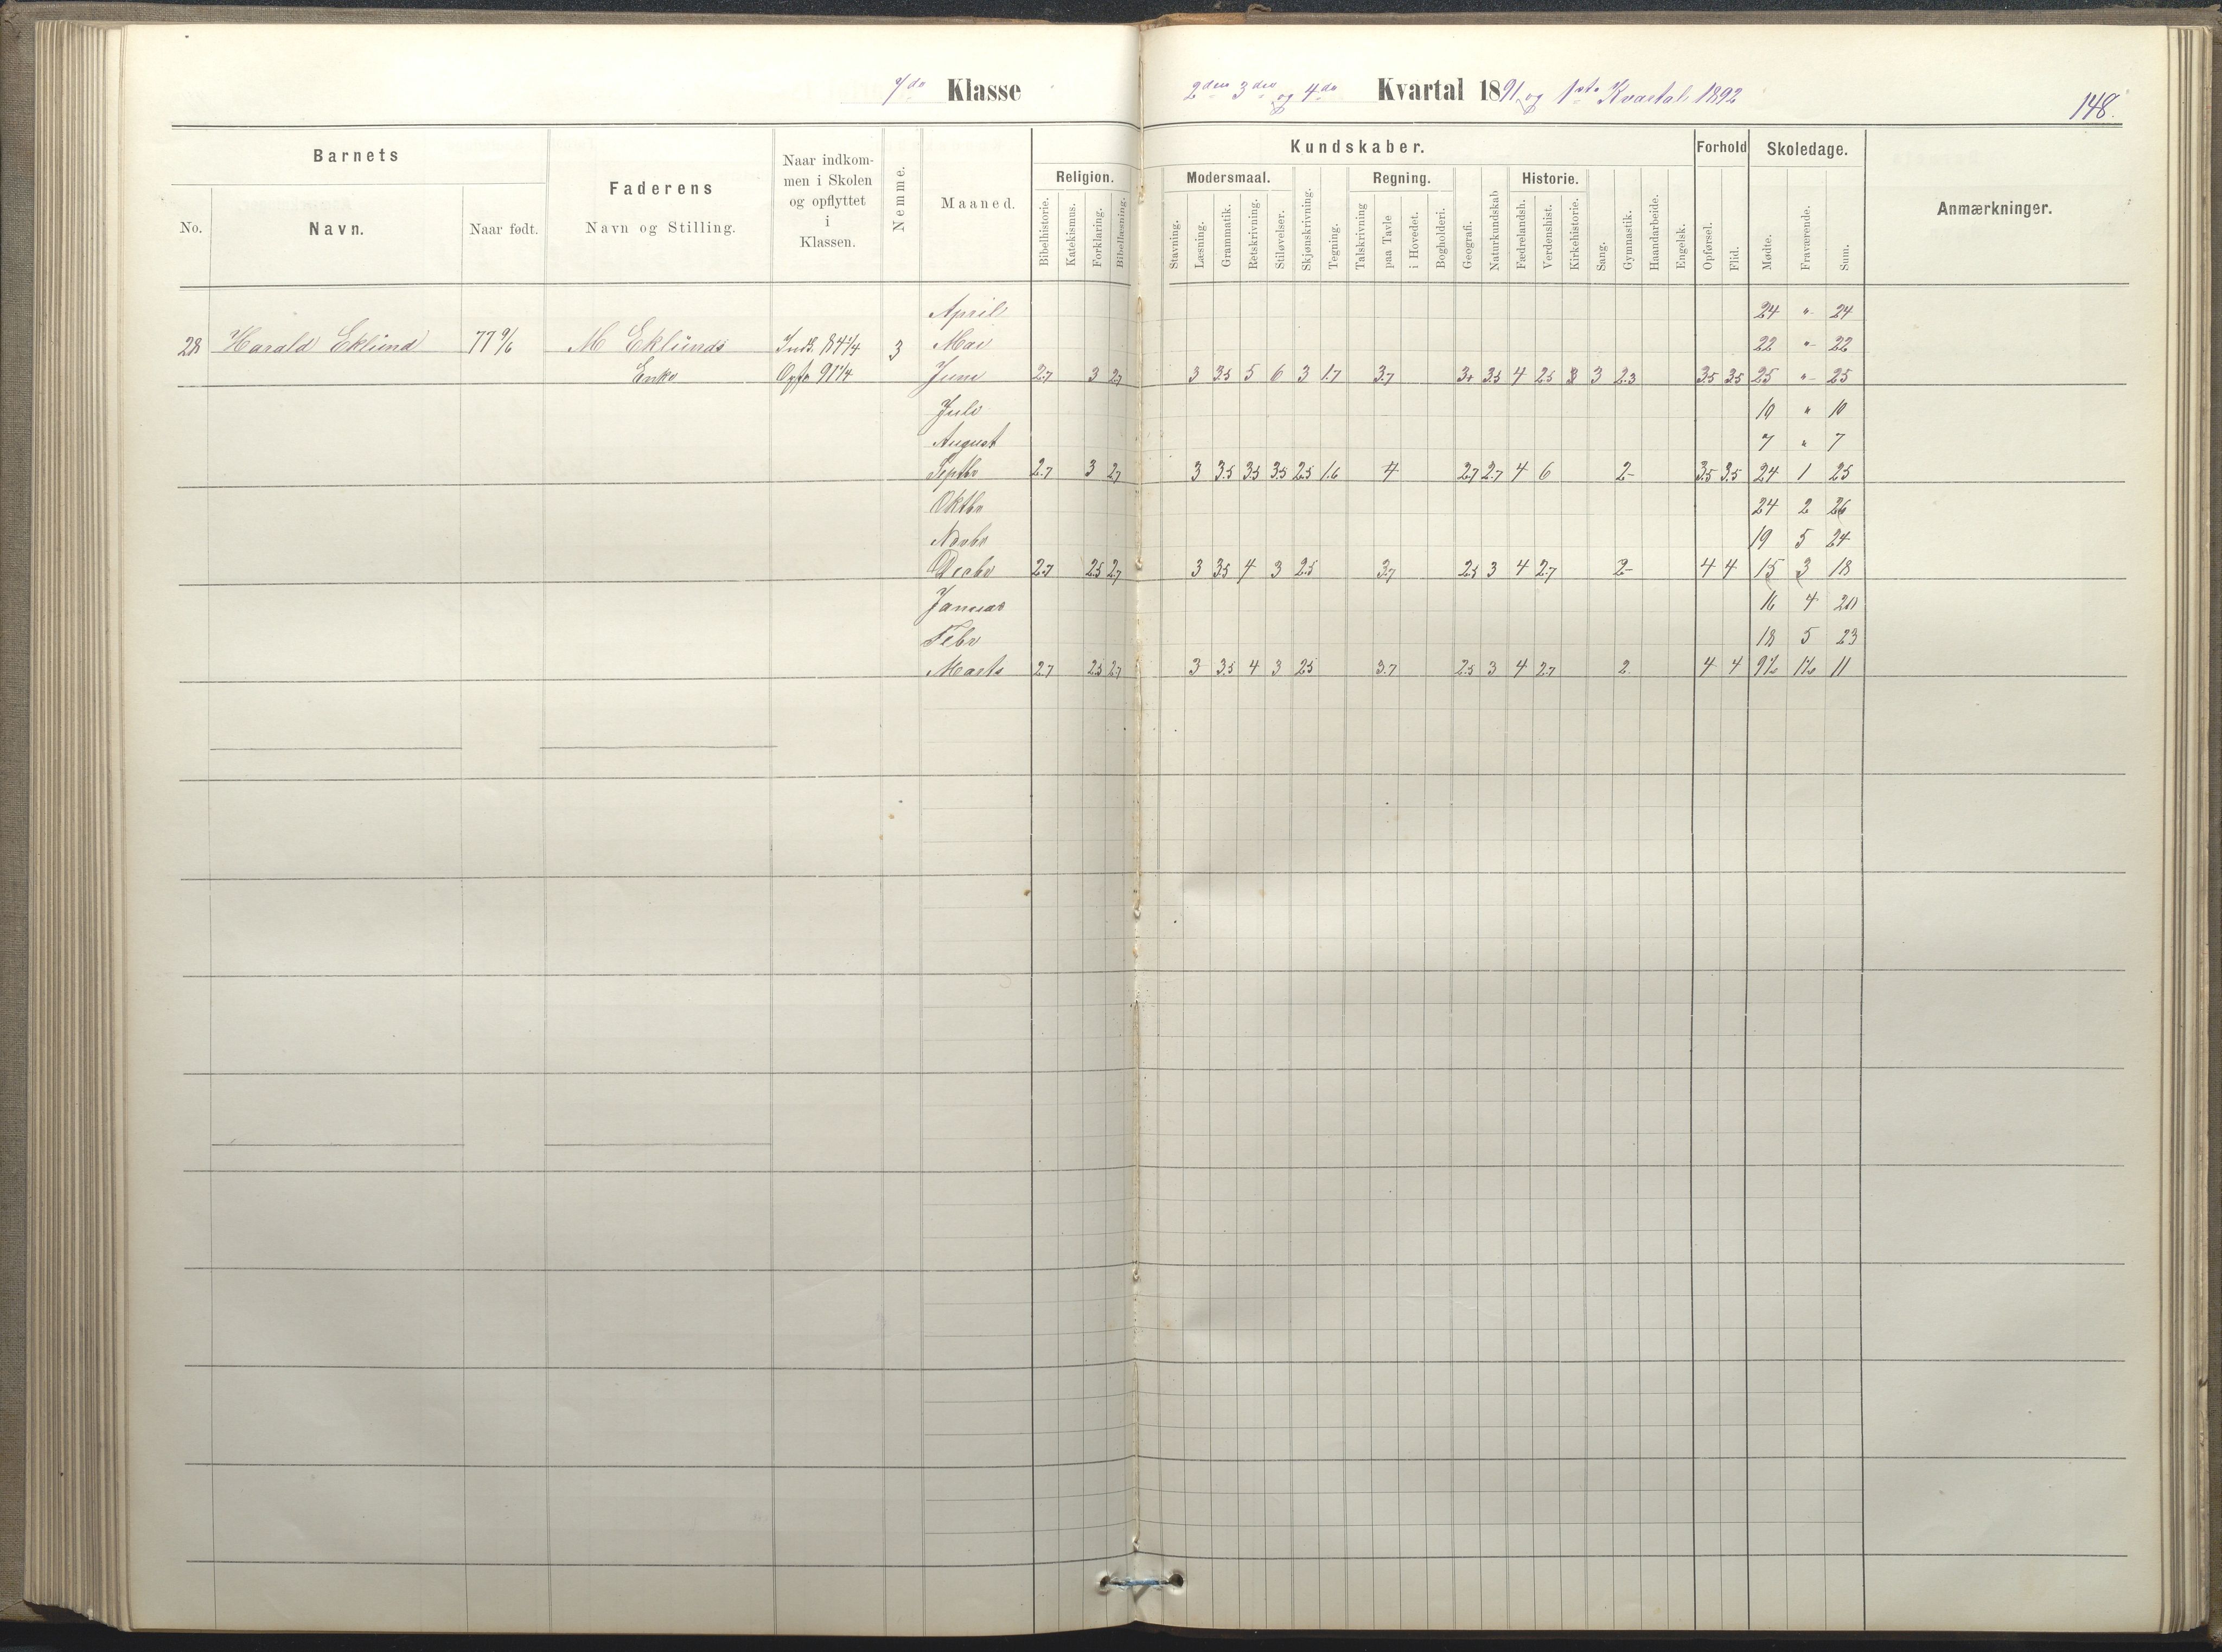 7de Klasse
2den 3die og 4de Kvartal 1891 og 1ste Kvartal 1892
148.
Barnets
Faderens
Naar indkom-
men i Skolen
og opflyttet
i
Klassen.
Nemme.
Maaned.
Kundskaber.
Forhold
Skoledage.
Anmærkninger.
No.
Navn.
Naar født.
Navn og Stilling.
Religion.
Modersmaal.
Regning.
Historie.
Bibelhistorie. Katekismus. Forklaring. Bibellæsning. Stavning. Læsning. Grammatik. Retskrivning. Stiløvelser. Skjønskrivning. Tegning. Talskrivning paa Tavle i Hovedet. Bogholderi. Geografi. Naturkundskab Fædrelandsh. Verdenshist. Kirkehistorie. Sang. Gymnastik. Haandarbeide. Engelsk. Opførsel. Flid. Mødte. Fraværende. Sum.
April 24 " 24
28 Harald Eklund 77 9/6 M Eklunds Indk. 84 1/4 3 Mai 22 " 22
Enke Opfl 91 1/4 Juni 2.7 3 2.7 3 3.5 5 6 3 1.7 3.7 3+ 3.5 4 2.5 3 3 2.3 3.5 3.5 25 " 25
Juli 10 " 10
August 7 " 7
Septbr 2.7 3 2.7 3 3.5 3.5 3.5 2.5 1.6 4 2.7 2.7 4 6 2- 3.5 3.5 24 1 25
Oktbr 24 2 26
Novbr 19 5 24
Decbr 2.7 2.5 2.7 3 3.5 4 3 2.5 3.7 2.5 3 4 2.7 2- 4 4 15 3 18
Januar 16 4 20
Febr 18 5 23
Marts 2.7 2.5 2.7 3 3.5 4 3 2.5 3.7 2.5 3 4 2.7 2. 4 4 9½ 1½ 11